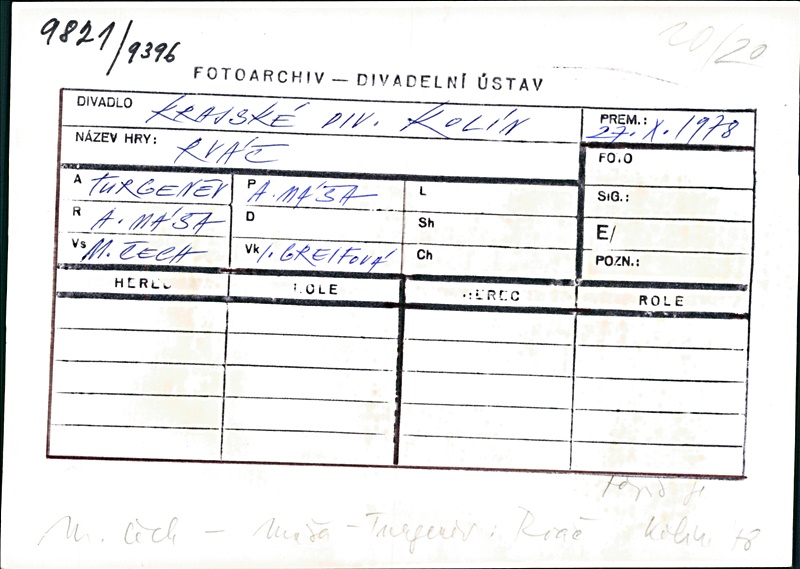 9821/9396
20/20
FOTOARCHIV — DIVADELNÍ ÚSTAV
DIVADLO KRAJSKÉ DIV. KOLÍN
PREM.: 27. X. 1978
NÁZEV HRY: RVÁČ
FOTO
A TURGENĚV P A. MÁŠA L
SIG.:
R A. MÁŠA D Sh
E/
Vs M. ČECH Vk I. GREIFOVÁ Ch
POZN.:
HEREC ROLE HEREC ROLE
M. Čech — Máša - Turgeněv: Rváč Kolín 78